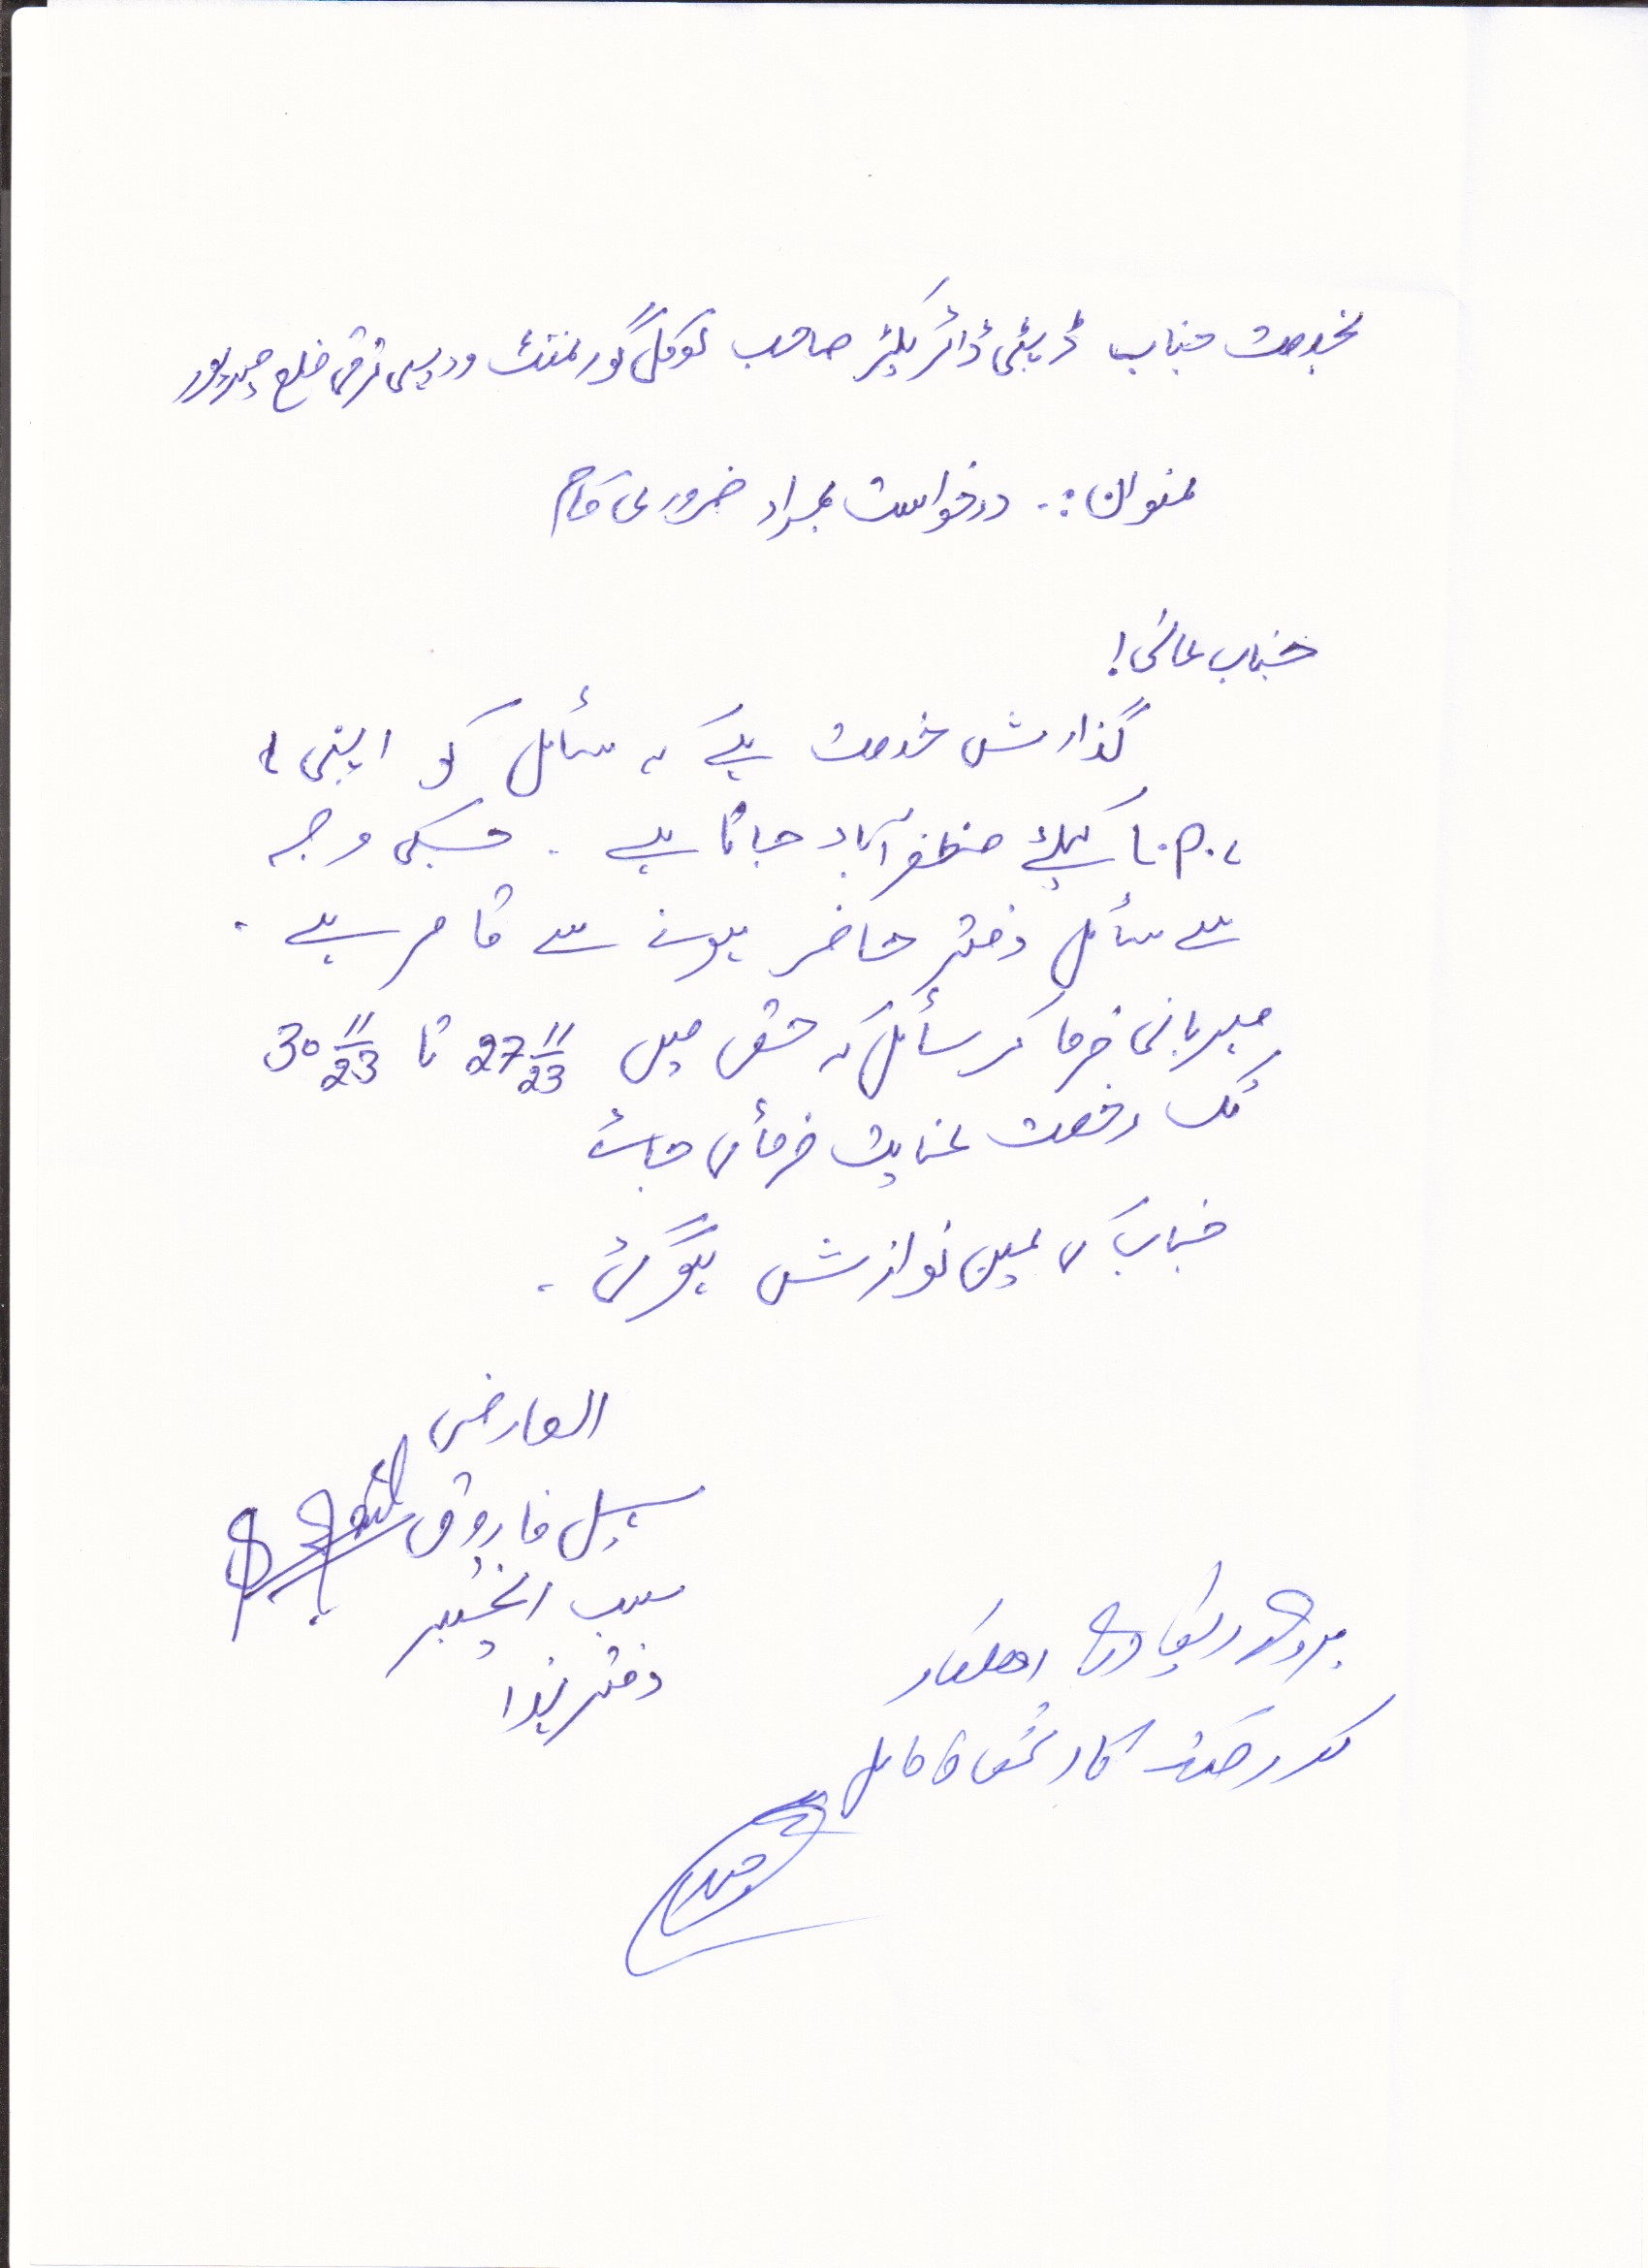 بخدمت جناب ڈپٹی ڈائریکٹر صاحب لوکل گورنمنٹ و دیہی ترقی ضلع میرپور
عنوان :۔ درخواست بمراد ضروری کام
جناب عالی!
گذارش خدمت ہیکہ سائل کو اپنی
L.P.C کیلئے مظفرآباد جانا ہے ۔ جسکی وجہ
سے سائل دفتر حاضر ہونے سے قاصر ہے ۔
مہربانی فرما کر سائل کے حق میں 27 11/23 تا 30 11/23
تک رخصت عنایت فرمائی جائے
جناب کی عین نوازش ہوگی ۔
العارض
سہیل فاروق
سب انجینیر
دفتر ہذا